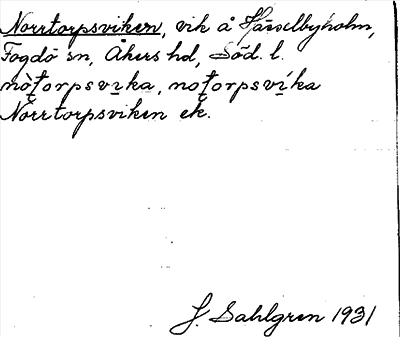 Norrtorpsviken, vik å Härselbyholm,
Fogdö sn, Åkers hd, Söd. l.
nòt̨orpsvika, not̨orpsvíka
Norrtorpsviken ek.
J. Sahlgren 1931